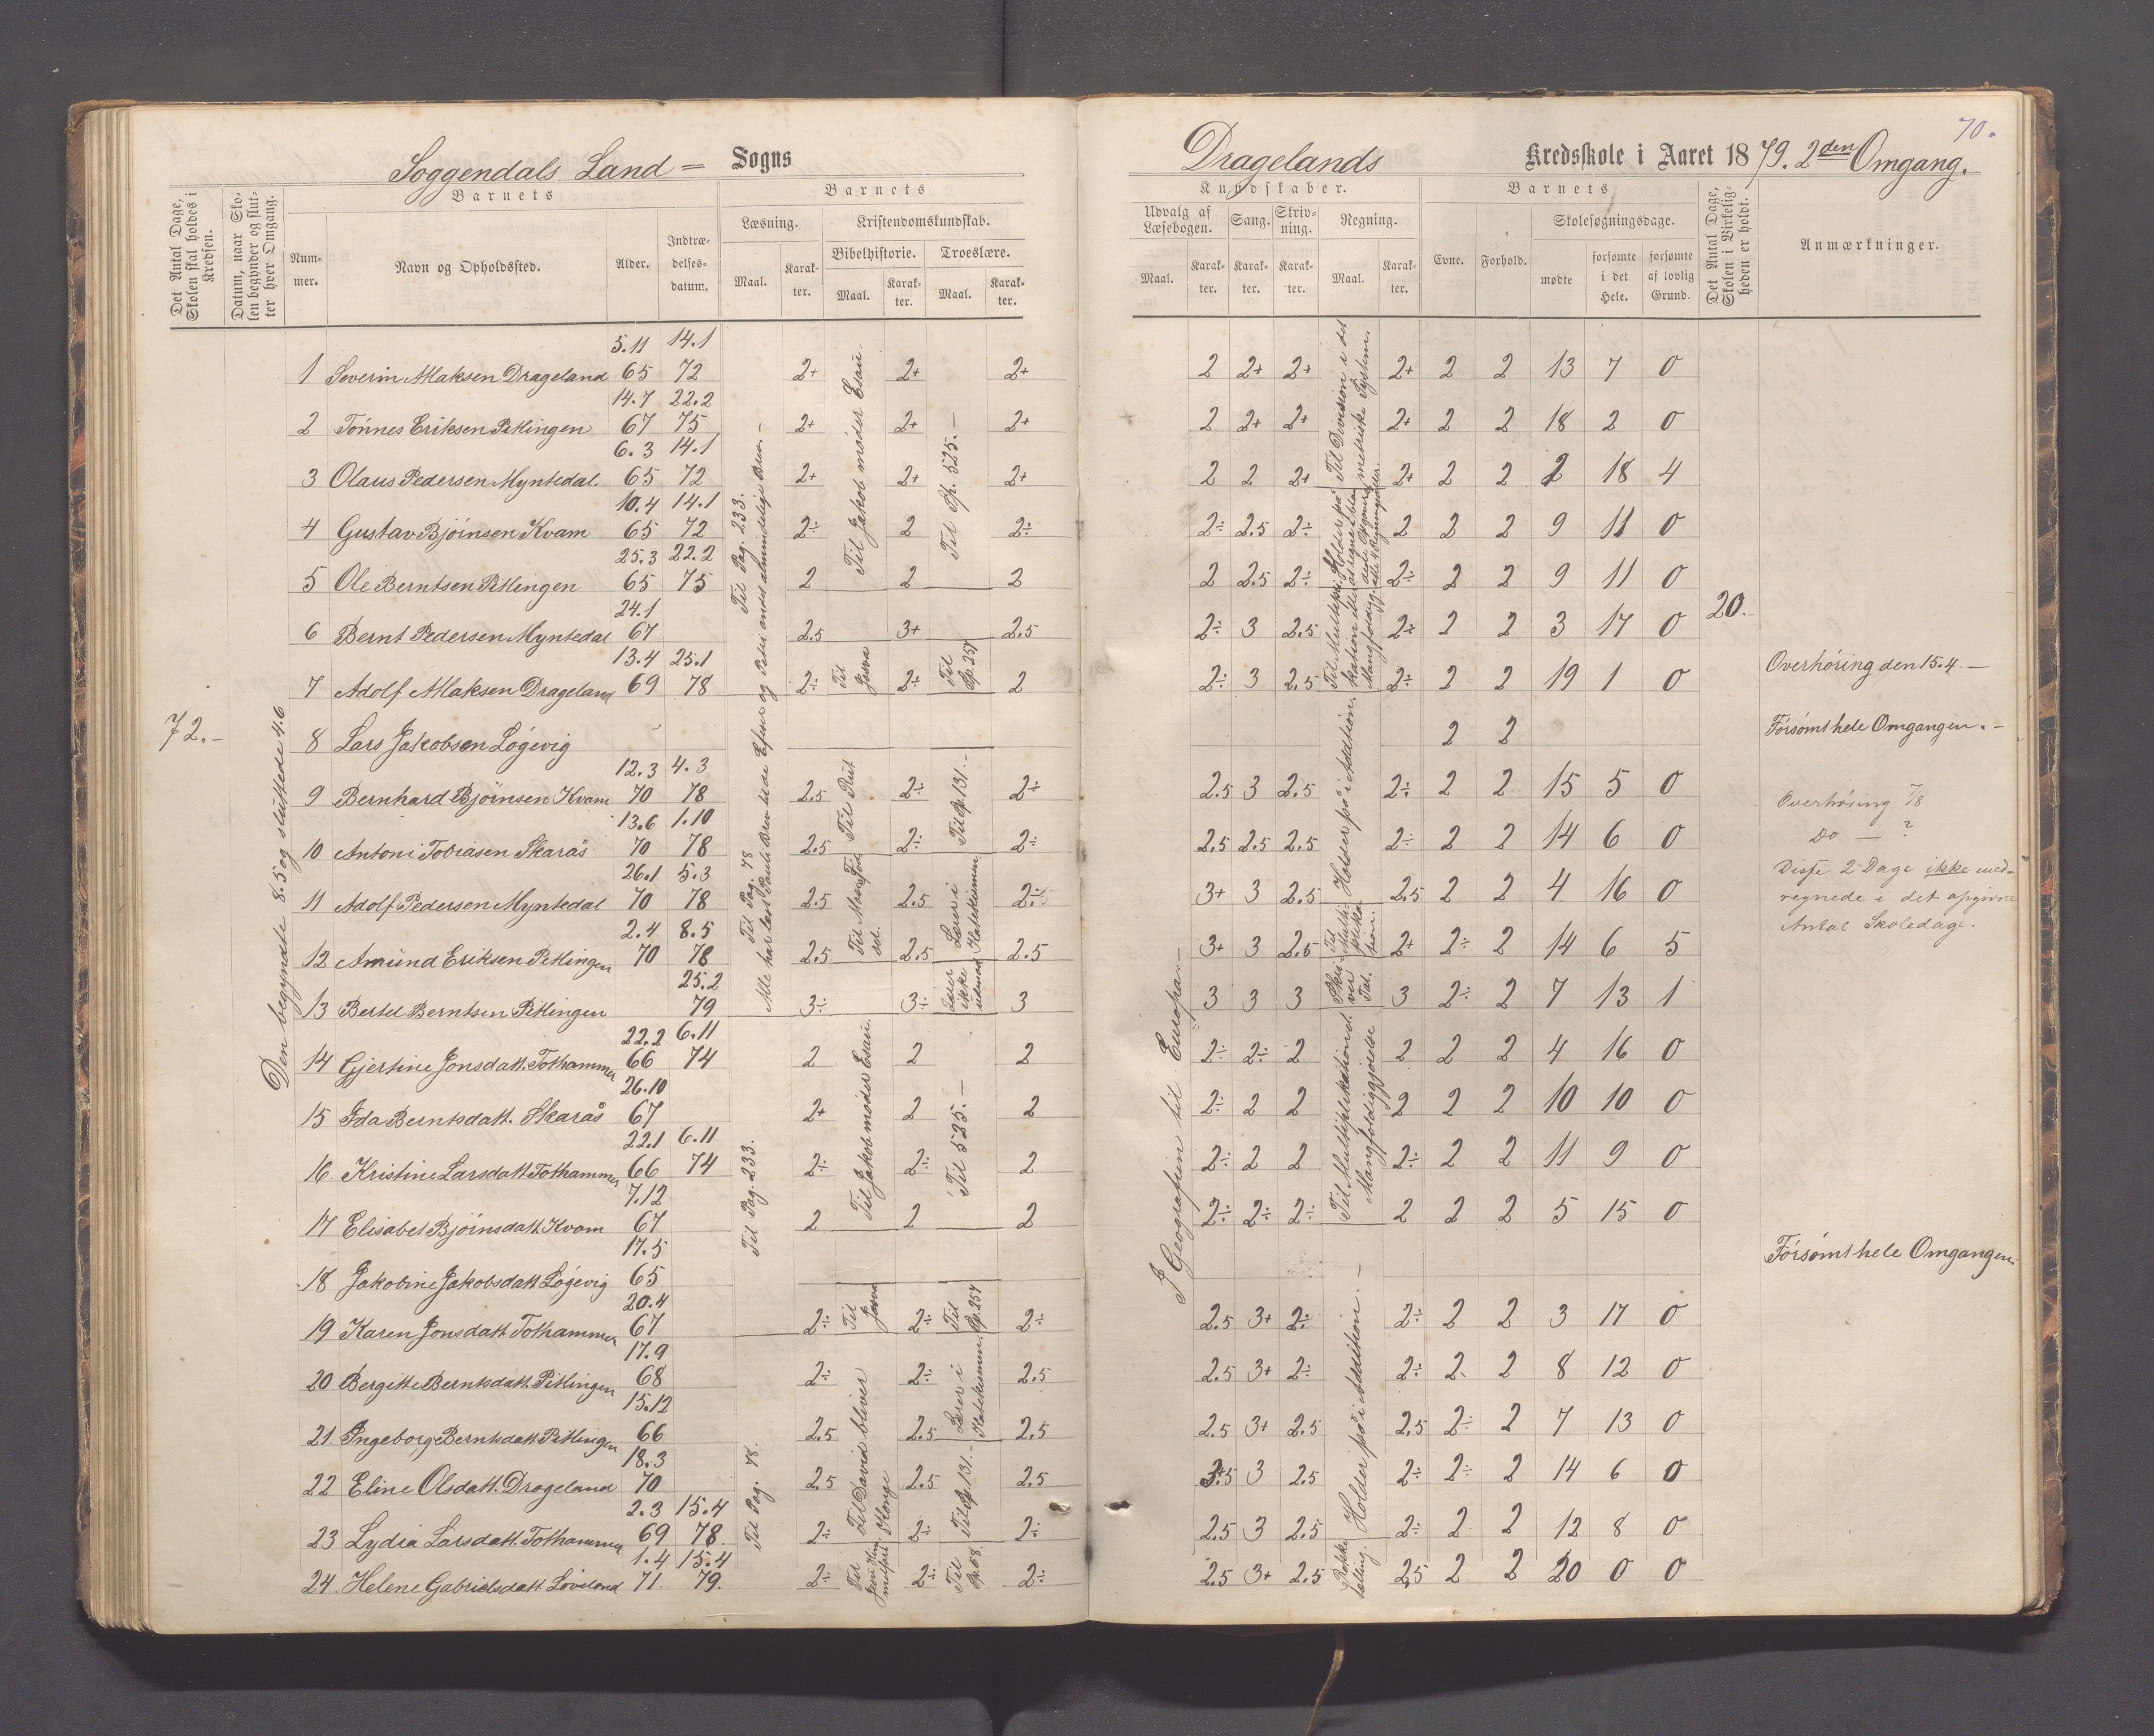 70.
Soggendals Land = Sogns
Dragelands Kredsskole i Aaret 1879. 2den Omgang.
Det Antal Dage, Skolen skal holdes i Kredsen.
Datum, naar Skolen begynder og slutter hver Omgang.
Barnets
Nummer.
Navn og Opholdssted.
Alder.
Indtrædelsesdatum.
Barnets
Læsning.
Maal.
Karakter.
Kristendomskundskab.
Bibelhistorie.
Maal.
Karakter.
Troeslære.
Maal.
Karakter.
Kundskaber.
Udvalg af Læsebogen.
Maal.
Karakter.
Sang.
Karakter.
Skrivning.
Karakter.
Regning.
Maal.
Karakter.
Barnets
Evne.
Forhold.
Skolesøgningsdage.
mødte
forsømte i det Hele.
forsømte af lovlig Grund.
Det Antal Dage, Skolen i Virkeligheden er holdt.
Anmærkninger.
72.-
Den begyndte 8.5 og sluttede 4.6
Til Pag. 233.
Til Jakob møder Esau.
Til Sp. 525.-
I Geografien til Europa.-
Til Division i det metriske System.
20.
1 Severin Maksen Drageland 5.11 65 14.1 72 2+ 2+ 2+ 2 2+ 2+ 2+ 2 2 13 7 0
2 Tönnes Eriksen Pitlingen 14.7 67 22.2 75 2+ 2+ 2+ 2 2+ 2+ 2+ 2 2 18 2 0
3 Olaus Pedersen Myntedal 6.3 65 14.1 72 2+ 2+ 2+ 2 2 2+ 2+ 2 2 2 18 4
4 Gustav Bjöinsen Kvam 10.4 65 14.1 72 2÷ 2 2÷ 2÷ 2.5 2÷ 2 2 2 9 11 0
5 Ole Berntsen Pitlingen 25.3 65 22.2 75 2 2 2 2 2.5 2÷ 2÷ 2 2 9 11 0
6 Bernt Pedersen Myntedal 24.1 67 2.5 3+ 2.5 2÷ 3 2.5 2÷ 2 2 3 17 0
7 Adolf Maksen Drageland 13.4 69 25.1 78 2÷ Til Josva 2÷ Til Sp. 257 2 2÷ 3 2.5 2÷ 2 2 19 1 0 Overhöring den 15.4.-
8 Lars Jakobsen Lögevig 2 2 Försömt hele Omgangen.-
9 Bernhard Bjöinsen Kvam 12.3 70 4.3 78 2.5 Til Rut 2÷ Til Sp. 131.- 2÷ 2.5 3 2.5 Holder på i Addition. 2÷ 2 2 15 5 0 Overhöring 7/8
10 Antoni Tobiasen Skarås 13.6 70 1.10 78 2.5 2÷ 2÷ 2.5 2.5 2.5 2÷ 2 2 14 6 0 Do — ?
11 Adolf Pedersen Myntedal 26.1 70 5.3 78 Til Pag. 78 2.5 2.5 Læser i Katekismen 2÷ 3+ 3 2.5 2.5 2 2 4 16 0 Disse 2 Dage ikke med-
12 Amund Eriksen Pitlingen 2.4 70 8.5 78 2.5 2.5 2.5 3+ 3 2.5 2+ 2÷ 2 14 6 5 regnede i det opgivne Antal Skoledage.
13 Bertel Berntsen Pitlingen 25.2 79 3÷ 3÷ Læser ikke udenad 3 3 3 3 Skriver Tal. 3 2÷ 2 7 13 1
14 Gjertine Jonsdatt. Tothammer 22.2 66 6.11 74 2 Til Jakob møder Esau. 2 2 2÷ 2÷ 2 2 2 2 4 16 0
15 Ida Berntsdatt. Skarås 26.10 67 2+ 2 Til 525.- 2 2÷ 2 2 2 2 2 10 10 0
16 Kristine Larsdatt Tothammer 22.1 66 6.11 74 Til Pag. 233. 2÷ 2÷ 2 2÷ 2 2 2÷ 2 2 11 9 0
17 Elisabet Bjöinsdatt. Kvam 7.12 67 2 2 2 2÷ 2÷ 2÷ 2 2 2 5 15 0
18 Jakobine Jakobsdatt Lögevig 17.5 65 Försömt hele Omgangen.
19 Karen Jonsdatt. Tothammer 20.4 67 2÷ Til Josva 2÷ Til Sp. 257 2÷ 2.5 3+ 2÷ 2÷ 2 2 3 17 0
20 Bergitte Berntsdatt. Pitlingen 17.9 68 2÷ 2÷ Læser i Katekismen. 2.5 2.5 3+ 2÷ Holder på i Addition.- 2÷ 2 2 8 12 0
21. Ingeborg Berntsdatt Pitlingen 15.12 66 2.5 Til David bliver Konge 2.5 2.5 2.5 3+ 2.5 2.5 2÷ 2 7 13 0
22 Eline Olsdatt. Drageland 18.3 70 Til Pag. 78. 2.5 2.5 Til Sp. 131.- 2.5 3 2.5 2÷ 2÷ 2 14 6 0
23 Lydia Larsdatt. Tothammer 2.3 69 15.4 78 2÷ 2÷ 2÷ 2.5 3 2.5 2÷ 2 2 12 8 0
24 Helene Gabrielsdatt. Löveland 1.4 71. 15.4 79. 2÷ 2÷ Til Sp. 68. 2÷ 2.5 3+ 2.5 2.5 2 2 20 0 0